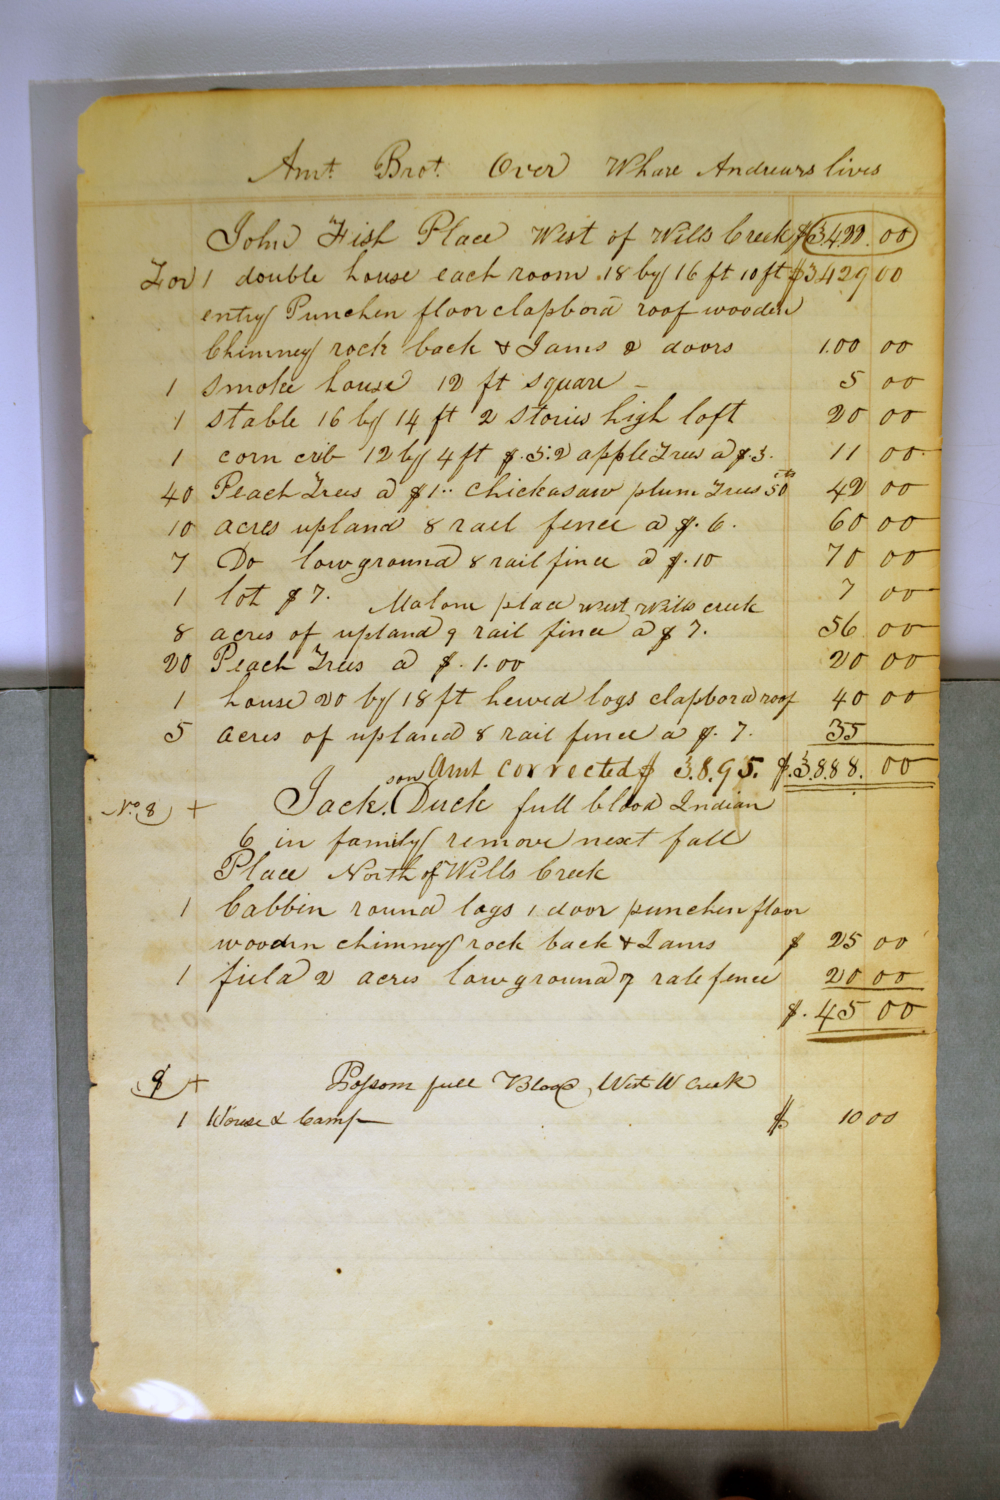 Amt. Brot. Over Whare Andrews lives
John Fish Place West of Wills Creek $ 3422.00
For 1 double house each room 18 by 16 ft 10 ft $3429 00
entry Punchen floor clapbord roof wooden
Chimney rock back & Jams 2 doors 1.00 00
1 smoke house 12 ft square - 5 00
1 stable 16 by 14 ft 2 stories high loft 20 00
1 corn crib 12 by 4 ft $.5:2 apple Trees a $3. 11 00
40 Peach Trees a $1.. chickasaw plum Trees 50 cts 42 00
10 acres upland 8 rail fence a $.6. 60 00
7 Do lowground 8 rail fince a $.10 70 00
1 lot $7. 7 00
Malone place west Wills creek
8 acres of upland 9 rail fince a $7. 56 00
20 Peach Trees a $.1.00 20 00
1 house 20 by 18 ft hewed logs clapbord roof 40 00
5 acres of upland 8 rail fence a $.7. 35
Amt corrected $ 3.8.95. $.3.888. 00
No. 8 + Jack. son Duck full blood Indian
6 in family remove next fall
Place North of Wills Creek
1 Cabbin round logs 1 door punchen floor
wooden chimney rock back & Jams $ 25 00
1 field 2 acres lowground 7 rale fence 20 00
$. 45 00
9 + Possom full Blood, West W Creek
1 House & Camp $ 10 00